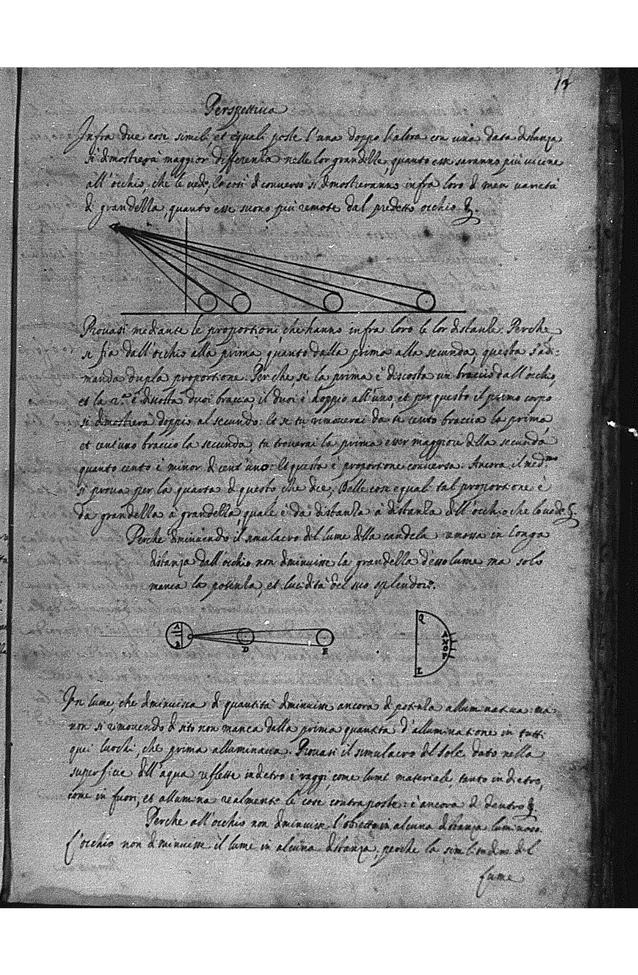 13
Perspettiva
Infra due cose simili, et equali poste l'una doppo l'altra con una data distanza
si dimostrerà maggior differenza nelle lor grandezze, quanto esse saranno più vicine
all'occhio, che le vede, et così di converso si dimostreranno infra loro di men varietà
di grandezza, quanto esse sono più remote dal predetto occhio
Provasi mediante le proportioni, che hanno infra loro le lor distanze. Perche
si fia dall'occhio alla prima quanto dalla prima alla seconda, questa s'ad-
manda dupla proportione. Perche se la prima è discosta un braccio dall'occhio
et la 2.ª è discosta duoi braccia, il duoi è doppio all'uno, et per questo il primo corpo
si dimostrerà doppio al secundo: Et se tu rimoverai da te cento braccia la prima
et cent'uno braccio la secunda, tu troverai la prima esser maggiore della secunda
quanto cento è minor di cent'uno: Et questa è proportione conversa: Ancora il med.mo
si prova per la quarta di questo che dice, Delle cose equali tal proportione è
da grandezza a grandezza quale è da distanza a distanza dell'occhio che le vede
Perche diminuendo il simulacro del lume della candela remossa in longa
distanza dall'occhio non diminuisse la grandezza d'esso lume ma solo
manca la potenza, et lucidità del suo splendore.
A
B
D
E
Q
A
X
O
P
Z
Un lume che diminuisca di quantità diminuisse ancora di potenza alluminativa: ma
non si rimovendo di sito non manca dalla prima quantità d'alluminatione in tutti
quei luochi, che prima alluminava. Provasi il simulacro del sole dato nella
superficie dell'aqua reflette indietro i raggi, come lume materiale, tanto in dietro,
come in fuori, et allumina realmente le cose contraposte: è ancora di dentro
Perche all'occhio non diminuisse l'obietto in alcuna distanza luminoso.
L'occhio non diminuisse il lume in alcuna distanza, perche la similitudine del
lume